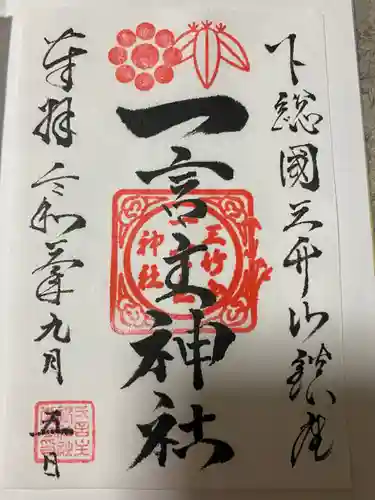 下総國三竹山鎮座
一言主神社
三竹山
神社
奉拝 令和 年 九月 五日